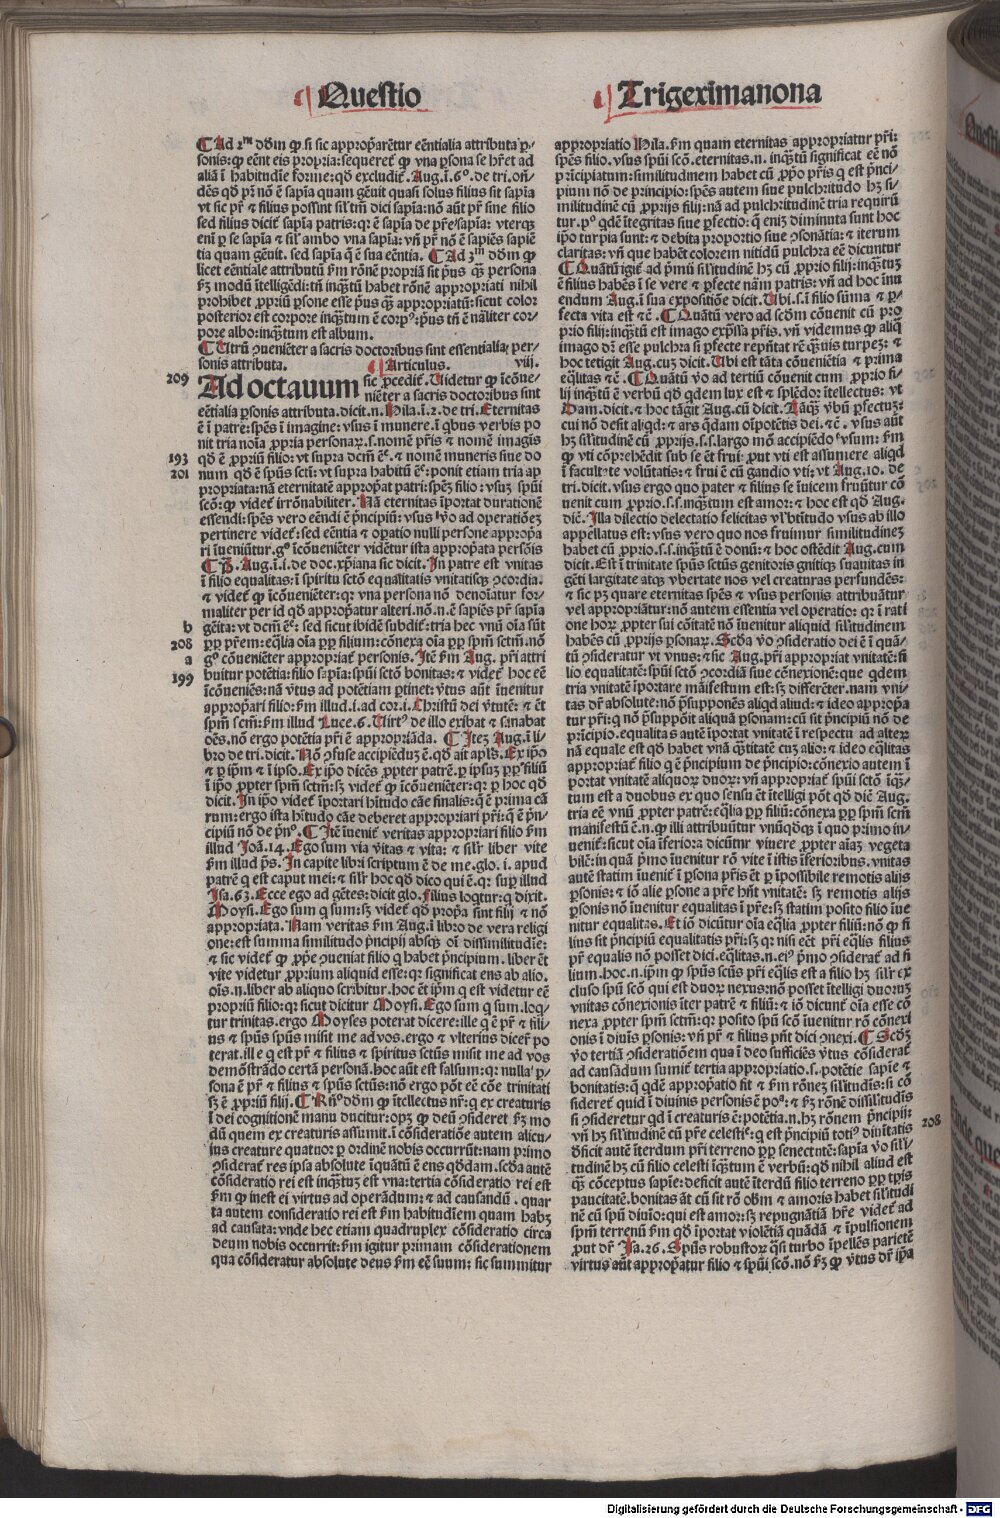 Questio
Trigeximanona
Ad 2ᵐ dōm ꝙ si sic appropꝛarētur eēntialia attributa ꝑ-
sonis: ꝙ eēnt eis ꝓpria: sequeret̄ ꝙ vna ꝑsona se hr̄et ad
aliā ī habitudīe forme: qd̄ excludit̄. Aug. ī. 6°. de tri. oñ-
dēs qd̄ pr̄ nō ē sapīa quam gēuit quasi solus filius sit sapīa
vt sic pr̄ ⁊ filius possint sil̓ tm̄ dici sapīa: nō aūt pr̄ sine filio
sed filius dicit̄ sapīa patris: qꝛ ē sapīa de pr̄e sapīa: vterqꝫ
enī ꝑ se sapīa ⁊ sil̓ ambo vna sapīa: vñ pr̄ nō ē sapiēs sapiē
tia quam gēuit. sed sapīa q̄ ē sua eēntia. Ad 3ᵐ dōm ꝙ
licet eēntiale attributū ẜm rōnē propriā sit pꝰus qꝫ persona
ẜm modū ītelligēdi: tñ inqꝫtū habet rōnē appropriati nihil
prohibet ꝓpriū ꝑsone esse pꝰus qꝫ appropriatū: sicut color
posterior est corpore inqꝫtum ē corpꝰ: pꝰus tñ ē nāliter cor-
pore albo: inqꝫtum est album.
Utrū ꝯueniēter a sacris doctoribus sint essentialia per-
sonis attributa. Articulus. viij.
209
Ad octauum sic ꝓcedit̄. Videtur ꝙ īcōue-
niēter a sacris doctoribus sint
eēntialia ꝑsonis attributa. dicit. n. Hila. ī. 2. de tri. Eternitas
ē ī patre: spēs ī imagine: vsus ī munere. ī qbus verbis po
nit tria noīa ꝓpria personaꝝ. s. nomē pr̄is ⁊ nomē imagīs
193
qd̄ ē ꝓpriū filio: vt supra dcm̄ ē. ⁊ nomē muneris siue do
201
num qd̄ ē spūs sctī: vt supra habitū ē: ponit etiam tria ap
propriata: nā eternitatē appropꝛat patri: spēꝫ filio: vsuꝫ spūi
scō: ꝙ videt̄ irrōnabiliter. Nā eternitas īportat durationē
essendi: spēs vero eēndi ē pꝛīcipiū: vsus ꝟo ad operationeꝫ
pertinere videt̄: sed eēntia ⁊ oꝑatio nulli persone appropꝛa
ri īueniūtur. gº īcōueniēter vidētur ista appropꝛata persōis
P̄. Aug. ī. i. de doc. xp̄iana sic dicit. In patre est vnitas
ī filio equalitas: ī spiritu sctō equalitatis vnitatisqꝫ ꝯcordia.
⁊ videt̄ ꝙ īcōueniēter: qꝛ vna persona nō denoīatur for-
maliter per id qd̄ appropꝛatur alteri. nō. n. ē sapiēs pr̄ sapīa
b
gēita: vt dcm̄ ē: sed sicut ibidē subdit̄: tria hec vnū oīa sūt
208
ꝓp pr̄em: eq̄lia oīa ꝓp filium: cōnexa oīa ꝓp spm̄ sctm̄. nō
a
gº cōueniēter appropriat̄ personis. Itē ẜm Aug. pr̄i attri
199
buitur potētia: filio sapīa: spūi sctō bonitas: ⁊ videt̄ hoc eē
īcōueniēs: nā ꝟtus ad potētiam ꝑtinet: ꝟtus aūt īuenitur
appropꝛari filio: ẜm illud. i. ad cor. i. Christū dei ꝟtutē: ⁊ ēt
spm̄ scm̄: ẜm illud Luce. 6. Virtꝰ de illo exibat ⁊ sanabat
oēs. nō ergo potētia pr̄i ē appropriāda. Iteꝫ Aug. ī li
bro de tri. dicit. Nō ꝯfuse accipiēdū ē. qd̄ ait apl̓s. Ex ip̄o
⁊ ꝑ ip̄m ⁊ ī ip̄o. Ex ip̄o dicēs ꝓpter patrē. ꝑ ip̄suꝫ ꝓp filiū
ī ip̄o ꝓpter spm̄ sctm̄: sꝫ videt̄ ꝙ īcōueniēter: qꝛ ꝑ hoc qd̄
dicit. In ip̄o videt̄ īportari hītudo cāe finalis: q̄ ē prima cā
rum: ergo ista hītudo cāe deberet appropriari pr̄i: q̄ ē pꝛī-
cipiū nō de pꝛīnº. Itē īuenit̄ veritas appropriari filio ẜm
illud Joā. 14. Ego sum via ꝟitas ⁊ vita: ⁊ sil̓r liber vite
ẜm illud ps̄. In capite libri scriptum ē de me. glo. i. apud
patrē q̄ est caput mei: ⁊ sil̓r hoc qd̄ dico qui ē. qꝛ sup̱ illud
Isa. 63. Ecce ego ad gētes: dicit glo. Filius loqt̄ur: q dixit.
Moysi. Ego sum q sum: sꝫ videt̄ qd̄ propꝛa sint filij ⁊ nō
appropriata. Nam veritas ẜm Aug. ī libro de vera religi
one: est summa similitudo pꝛīcipij absqꝫ oī dissimilitudīe:
⁊ sic videt̄ ꝙ ꝓpꝛe ꝯueniat filio q habet pꝛīcipium. liber ēt
vite videtur ꝓprium aliquid esse: qꝛ significat ens ab alio.
oīs. n. liber ab aliquo scribitur. hoc ēt ip̄m q est videtur eē
propriū filio: qꝛ sicut dicitur Moysi. Ego sum q sum. loq̄-
tur trinitas. ergo Moyses poterat dicere: ille q ē pr̄ ⁊ fili-
us ⁊ spūs spūs misit me ad vos. ergo ⁊ vlterius dicer̄ po
terat. ille q est pr̄ ⁊ filius ⁊ spiritus sctūs misit me ad vos
demōstrādo certā personā. hoc aūt est falsum: qꝛ nulla ꝑ-
sona ē pr̄ ⁊ filius ⁊ spūs sctūs: nō ergo pōt eē cōe trinitati
sꝫ ē ꝓpriū filij. Rñº dōm ꝙ ītellectus nr̄: q ex creaturis
ī dei cognitionē manu ducitur: opꝫ ꝙ deū ꝯsideret ẜm mo
dū quem ex creaturis assumit. ī cōsideratiōe autem alicu-
ius creature quatuor ꝑ ordinē nobis occurrūt: nam primo
ꝯsiderat̄ res ipsa absolute īquātū ē ens qd̄dam. scd̄a autē
cōsideratio rei est inqꝫtuꝫ est vna: tertia cōsideratio rei est
ẜm ꝙ inest ei virtus ad operādum: ⁊ ad causandū. quar
ta autem consideratio rei est ẜm habitudīem quam habꝫ
ad causata: vnde hec etiam quadruplex cōsideratio circa
deum nobis occurrit: ẜm igitur primam cōsiderationem
qua cōsideratur absolute deus ẜm eē suum: sic summitur
appropriatio Hila. ẜm quam eternitas appropriatur pr̄i:
spēs filio. vsus spūi scō. eternitas. n. inqꝫtū significat eē nō
pꝛīcipiatum: similitudinem habet cū ꝓpꝛo pr̄is q est pꝛīci-
pium nō de principio: spēs autem siue pulchritudo hꝫ si-
militudinē cū ꝓprijs filij: nā ad pulchritudinē tria requirū
tur. pº qdē ītegritas siue ꝑfectio: q̄ eniꝫ diminuta sunt hoc
ip̄o turpia sunt: ⁊ debita proportio siue ꝯsonātia: ⁊ iterum
claritas: vñ que habēt colorem nitidū pulchra eē dicuntur
Quātū igit̄ ad pꝛmū similitudinē hꝫ cū ꝓprio filij: inqꝫtuꝫ
ē filius habēs ī se vere ⁊ ꝑfecte nām patris: vñ ad hoc īnu
endum Aug. ī sua expositiōe dicit. Ubi. s. ī filio sūma ⁊ ꝑ-
fecta vita est ⁊ē. Quātū vero ad scd̄m cōuenit cū pro
prio filij: inqꝫtū est imago exp̄ssa pr̄is. vñ videmus ꝙ aliq̄
imago dr̄ esse pulchra si ꝑfecte repn̄tat rē qꝫuis turpeꝫ: ⁊
hoc tetigit Aug. cuꝫ dicit. Ubi est tāta cōueniētia ⁊ prima
eq̄litas ⁊ē. Quātū ꝟo ad tertiū cōuenit cum ꝓprio fi-
lij inqꝫtū ē verbū qd̄ qdem lux est ⁊ splēdoꝛ ītellectus: vt
Dam. dicit. ⁊ hoc tāgit Aug. cū dicit. Tāqꝫ ꝟbū ꝑfectuꝫ:
cui nō desit aliqd: ⁊ ars q̄dam oīpotētis dei. ⁊ē. vsus aūt
hꝫ sil̓itudinē cū ꝓprijs. s. s. largo mō accipiēdo vsum: ẜm
ꝙ vti cōpꝛehēdit sub se ēt frui: ꝓut vti est assumere aliqd
ī facultate volūtatis: ⁊ frui ē cū gaudio vti: vt Aug. 10. de
tri. dicit. vsus ergo quo pater ⁊ filius se īuicem fruūtur cō
uenit cum ꝓprio. s. s. inqꝫtum est amoꝛ: ⁊ hoc est qd̄ Aug.
dic̄. Illa dilectio delectatio felicitas vl̓ btītudo vsus ab illo
appellatus est: vsus vero quo nos fruimur similitudineꝫ
habet cū ꝓprio. s. s. inqꝫtū ē donū: ⁊ hoc ostēdit Aug. cum
dicit. Est ī trinitate spūs sctūs genitoris gnitiqꝫ suauitas in
gēti largitate atqꝫ vbertate nos vel creaturas perfundēs:
⁊ sic pꝫ quare eternitas spēs ⁊ vsus personis attribuātur
vel appropriātur: nō autem essentia vel operatio: qꝛ ī rati
one hoꝝ ꝓpter sui cōitatē nō īuenitur aliquid sil̓itudinem
habēs cū ꝓprijs ꝑsonaꝝ. Scd̄a ꝟo ꝯsideratio dei ē ī quā-
tū ꝯsideratur vt vnus: ⁊ sic Aug. pr̄i appropriat vnitatē: fi
lio equalitatē: spūi sctō ꝯcordiā siue cōnexionē: que qdem
tria vnitatē īportare māifestum est: sꝫ differēter. nam vni-
tas dr̄ absolute: nō pꝛsupponēs aliqd aliud: ⁊ ideo appropꝛa
tur pr̄i: q nō pꝛsuppōit aliquā ꝑsonam: cū sit pꝛīcipiū nō de
pꝛīcipio. equalitas autē īportat vnitatē ī respectu ad alteꝝ
nā equale est qd̄ habet vnā qꝫtitatē cuꝫ alio: ⁊ ideo eq̄litas
appropriat̄ filio q ē pꝛīcipium de pꝛīcipio: cōnexio autem ī
portat vnitatē aliquoꝝ duoꝝ: vñ appropriat̄ spūi sctō īqꝫ-
tum est a duobus ex quo sensu ēt ītelligi pōt qd̄ dic̄ Aug.
tria eē vnū ꝓpter patrē: eq̄lia ꝓp filiū: cōnexa ꝓp spm̄ scm̄
manifestū ē. n. ꝙ illi attribuūtur vnūqd̄qꝫ ī quo primo in-
uenit̄: sicut oīa īferiora dicūtur viuere ꝓpter aīaꝫ vegeta
bilē: in qua pꝛmo īuenitur rō vite ī istis īferioribus. vnitas
autē statim īuenit̄ ī psona pr̄is ēt ꝑ īpossibile remotis alijs
ꝑsonis: ⁊ iō alie ꝑsone a pr̄e hn̄t vnitatē: sꝫ remotis alijs
ꝑsonis nō īuenitur equalitas ī pr̄e: sꝫ statim posito filio īue
nitur equalitas. Et iō dicūtur oīa eq̄lia ꝓpter filiū: nō ꝙ fi
lius sit pꝛīcipiū equalitatis pr̄i: sꝫ qꝛ nisi eēt pr̄i eq̄lis filius
pr̄ equalis nō posset dici. eq̄litas. n. eiꝰ pꝛmo ꝯsiderat̄ ad fi
lium. hoc. n. ip̄m ꝙ spūs sctūs pr̄i eq̄lis est a filio hꝫ sil̓r ex
cluso spū scō qui est duoꝝ nexus: nō posset ītelligi duoruꝫ
vnitas cōnexionis īter patrē ⁊ filiū: ⁊ iō dicunt̄ oīa esse cō
nexa ꝓpter spm̄ sctm̄: qꝛ posito spū scō īuenitur rō cōnexi
onis ī diuīs ꝑsonis: vñ pr̄ ⁊ filius pn̄t dici ꝯnexi. Scd̄ꝫ
ꝟo tertiā ꝯsideratiōem qua ī deo sufficiēs ꝟtus cōsiderat̄
ad causādum sumit̄ tertia appropriatio. s. potētie sapīe ⁊
bonitatis: q̄ qdē appropꝛatio fit ⁊ ẜm rōneꝫ sil̓itudīs: si cō
sideret̄ quid ī diuinis personis ē poª: ⁊ ẜm rōnē dissil̓itudīs
si ꝯsideretur qd ī creaturis ē: potētia. n. hꝫ rōnem pꝛīcipij:
208
vñ hꝫ sil̓itudinē cū pr̄e celesti: q est pꝛīcipiū totiꝰ diuītatis
dꝰficit autē īterdum pr̄i terreno ꝓp senectutē: sapīa ꝟo sil̓i
tudinē hꝫ cū filio celesti īqꝫtum ē verbū: qd̄ nihil aliud est
qꝫ cōceptus sapīe: deficit autē īterdū filio terreno ꝓp tꝑis
paucitatē. bonitas āt cū sit rō obm̄ ⁊ amoris habet sil̓itudī
nē cū spū diuīo: qui est amoꝛ: sꝫ repugnātiā hr̄e videt̄ ad
spm̄ terrenū ẜm qd̄ īportat violētiā quādā ⁊ īpulsionem
ꝓut dr̄ Isa. 26. Spūs robustoꝝ q̄si turbo īpellēs parietē
virtus aūt appropꝛatur filio ⁊ spūi scō. nō ẜꝫ ꝙ ꝟtus dr̄ ip̄a
Digitalisierung gefördert durch die Deutsche Forschungsgemeinschaft - DFG